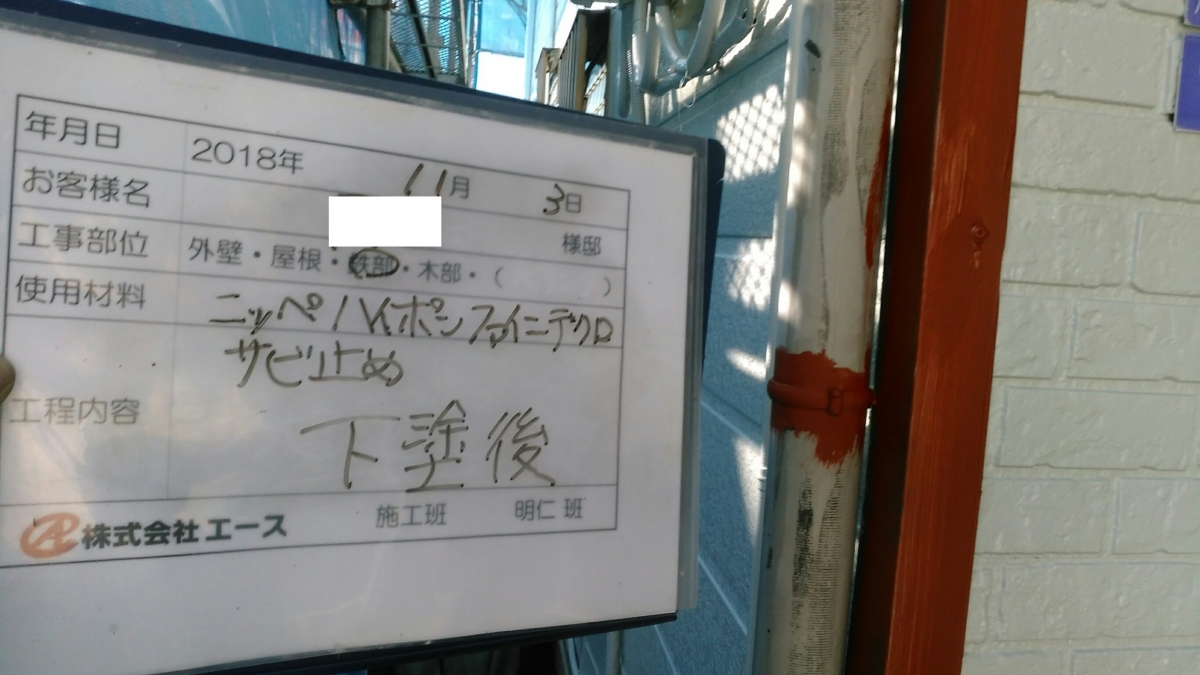 年月日 2018年 11月 3日
お客様名 様邸
工事部位 外壁・屋根・鉄部・木部・( )
使用材料 ニッペハイポンファインデクロ
サビ止め
工程内容 下塗後
株式会社 エース 施工班 明仁 班